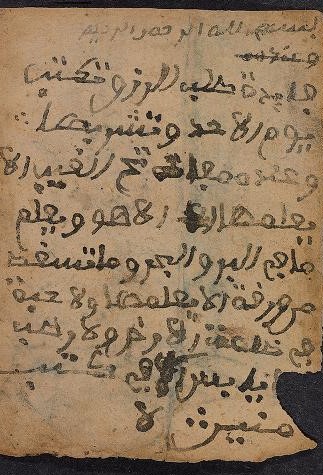 بسم الله الرحمن الرحيم
وعنده
فايدة طلب الرزق تكتب
يوم الاحد وتشربها
وعنده مفاتح الغيب لا
يعلمها الا هو ويعلم
ما في البر والبحر وما تسقط
من ورقة الا يعلمها ولا حبة
في ظلمة الارض ولا رطب
يابس الا في كتب
مبين لا